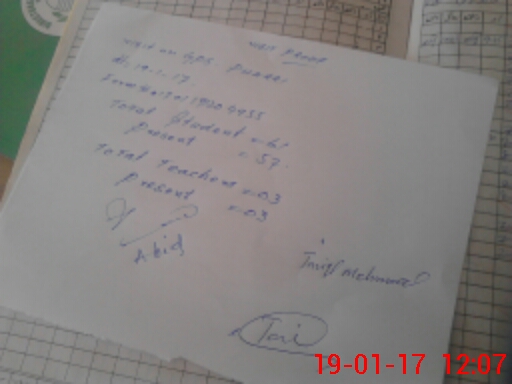 Visit Proof
Visit on GPS
Dt. 19-1-17
Total Student = 61
Present = 57
Total Teachers = 03
Present = 03
Abid
Tariq Mehmood
Tari
19-01-17 12:07